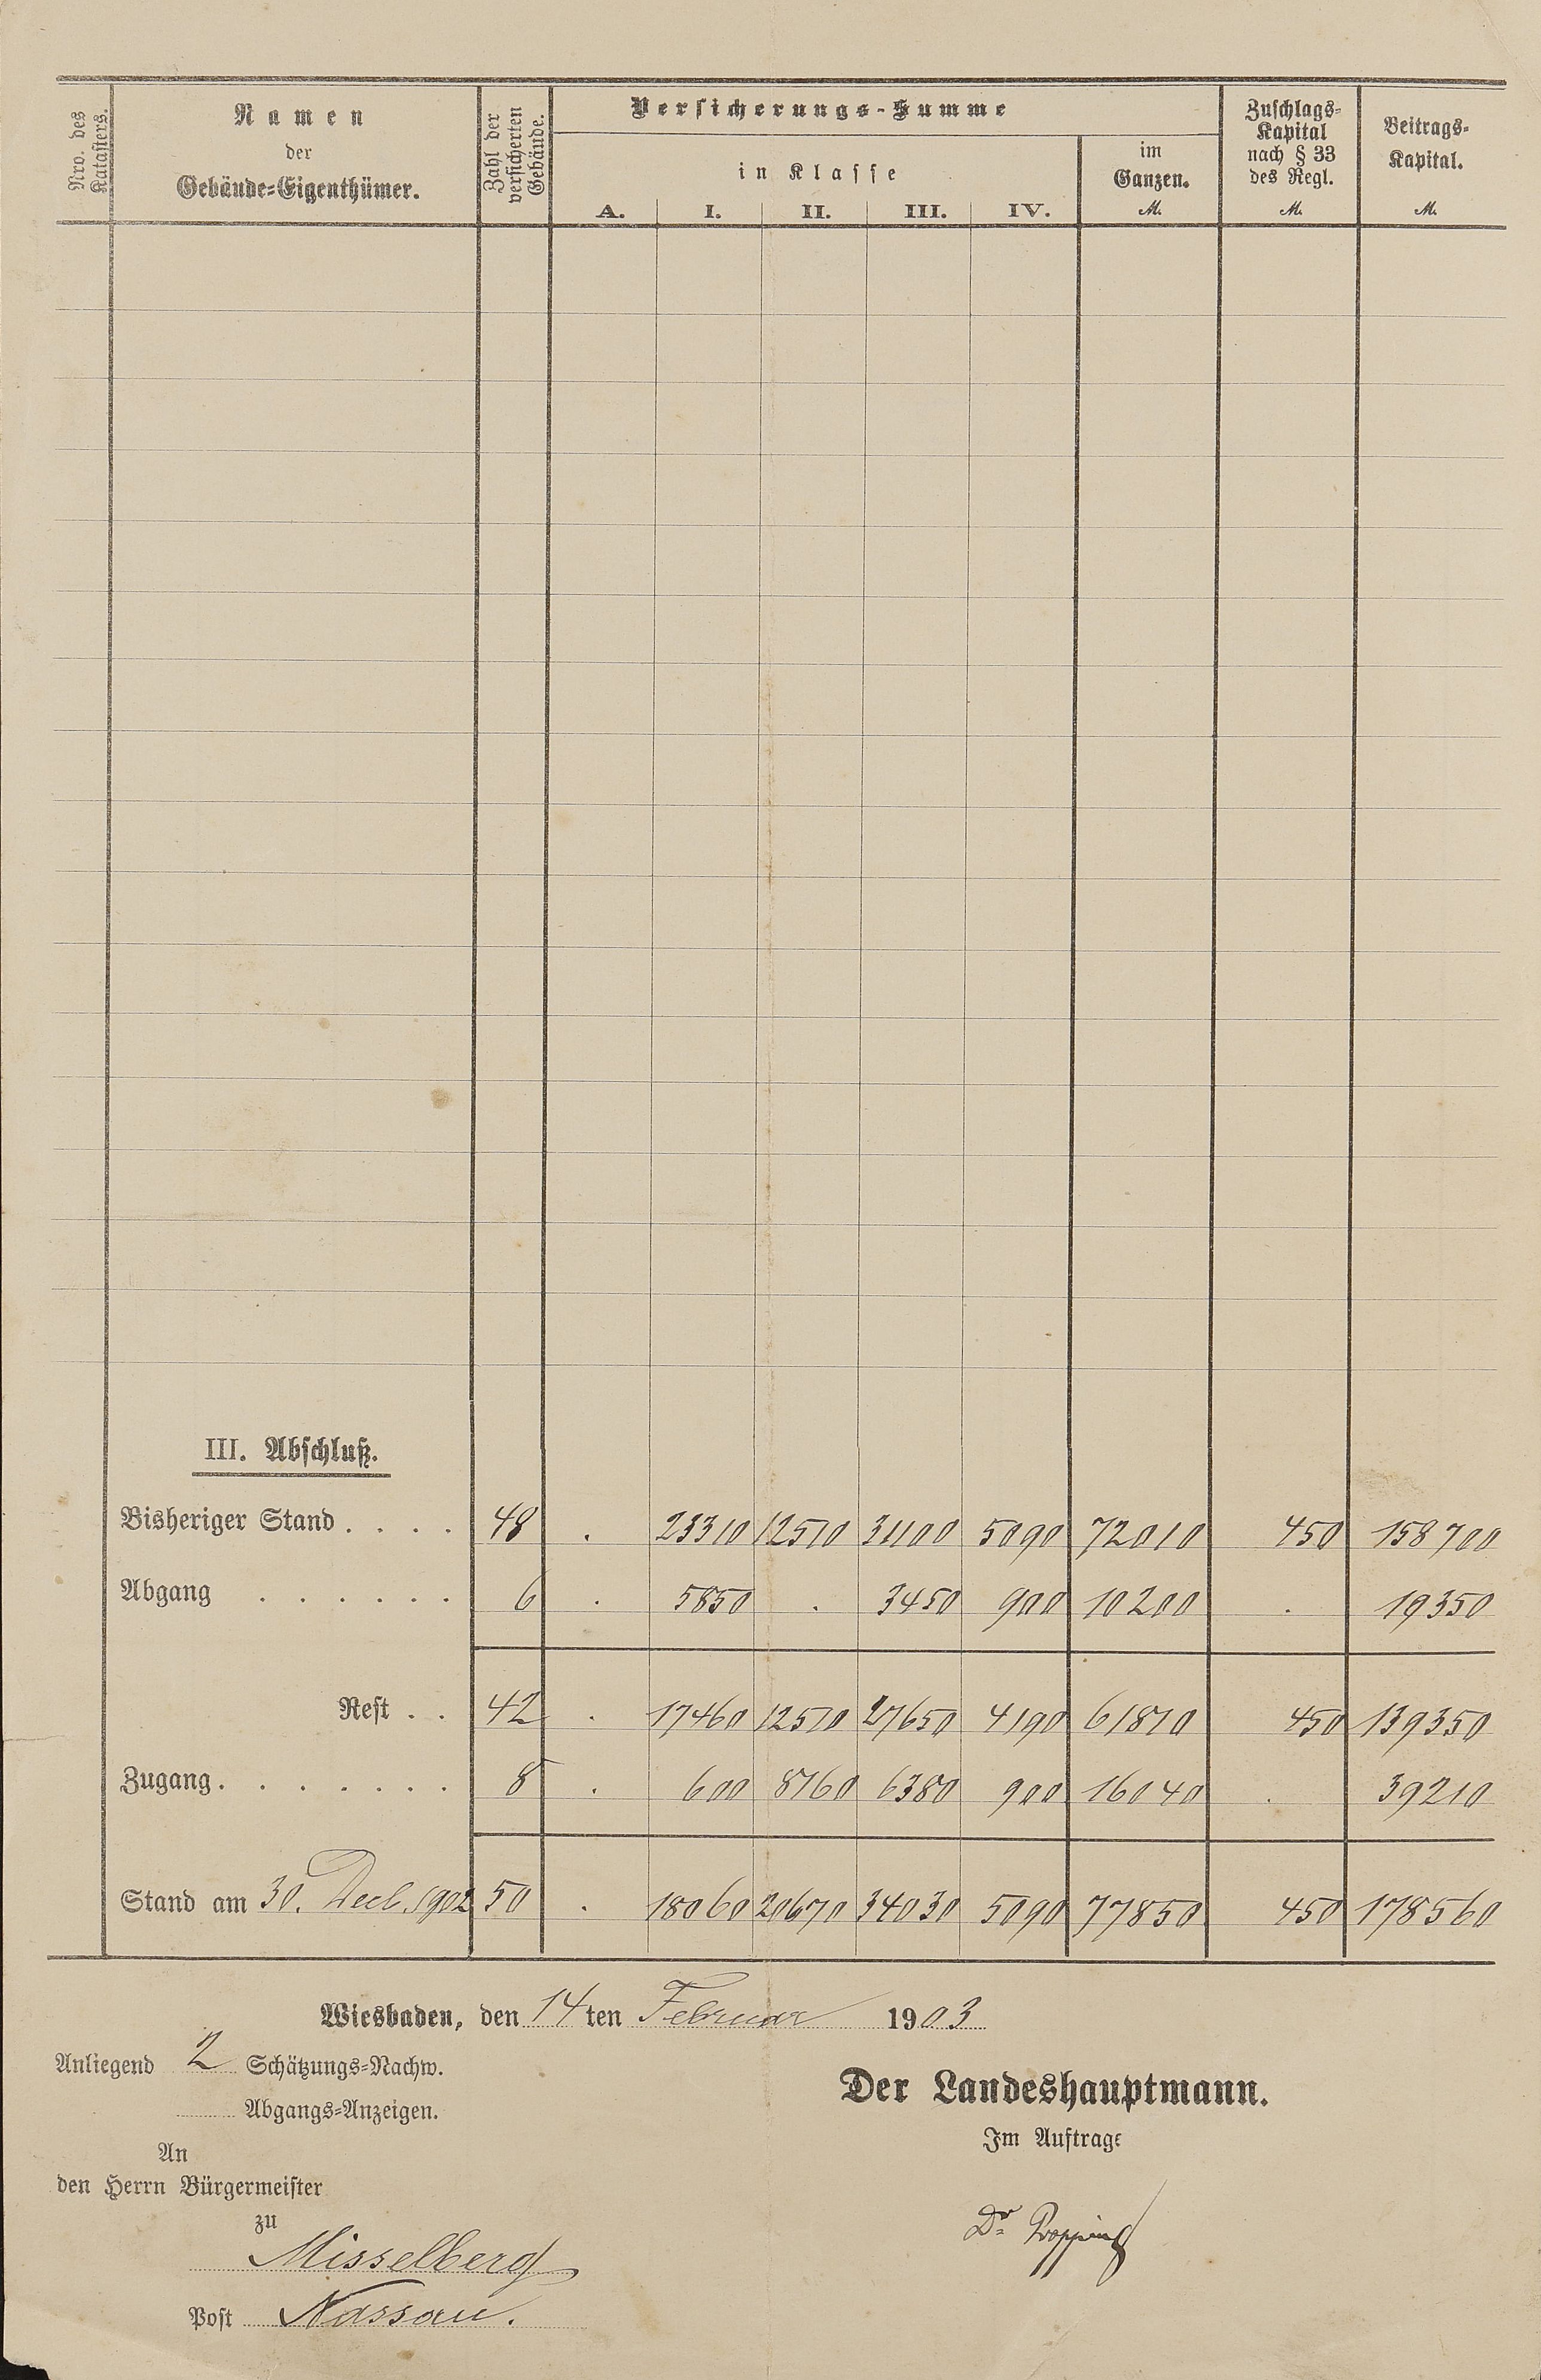 Nro. des Katasters.
Namen
der
Gebäude=Eigenthümer.
Zahl der versicherten Gebäude.
Versicherungs-Summe
in Klasse
A. I. II. III. IV.
im
Ganzen.
M.
Zuschlags=
Kapital
nach § 33
des Regl.
M.
Beitrags=
Kapital.
M.
III. Abschluß.
Bisheriger Stand . . . . 48 . 23310 12510 31100 5090 72010 450 158700
Abgang . . . . . . 6 . 5850 . 3450 900 10200 . 19350
Rest . . 42 . 17460 12510 27650 4190 61810 450 139350
Zugang . . . . . . . 8 . 600 8160 6380 900 16040 . 39210
Stand am 30. Decb. 1902 50 . 18060 20670 34030 5090 77850 450 178560
Wiesbaden, den 14ten Februar 1903
Anliegend 2 Schätzungs=Nachw.
Abgangs=Anzeigen.
Der Landeshauptmann.
Im Auftrage
An
den Herrn Bürgermeister
zu
Misselberg
Post Nassau.
Dr